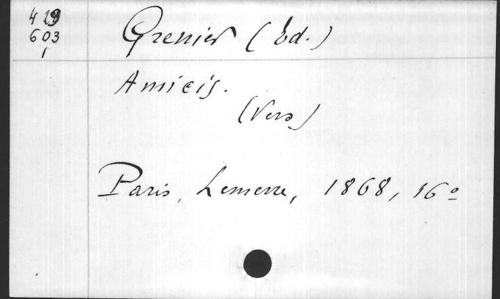 429
603
1
Grenier (Ed.)
Amicis.
(Vers)
Paris, Lemerre, 1868, 16º